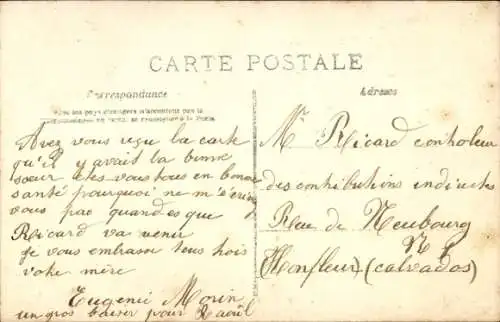 CARTE POSTALE
Correspondance
Adresse
Tous les pays étrangers n'acceptent pas la
Avez vous reçu la carte
qu'il y avait la bonne
sœur etes vous tous en bonne
santé pourquoi ne m's'écrivez
vous pas quand es que
Ricard va venir
je vous embrasse tous trois
votre mère
Eugenie Morin
un gros baiser pour Raoul
Mr Ricard controleur
des contributions indirectes
Rue de Neubourg
Honfleur (calvados)